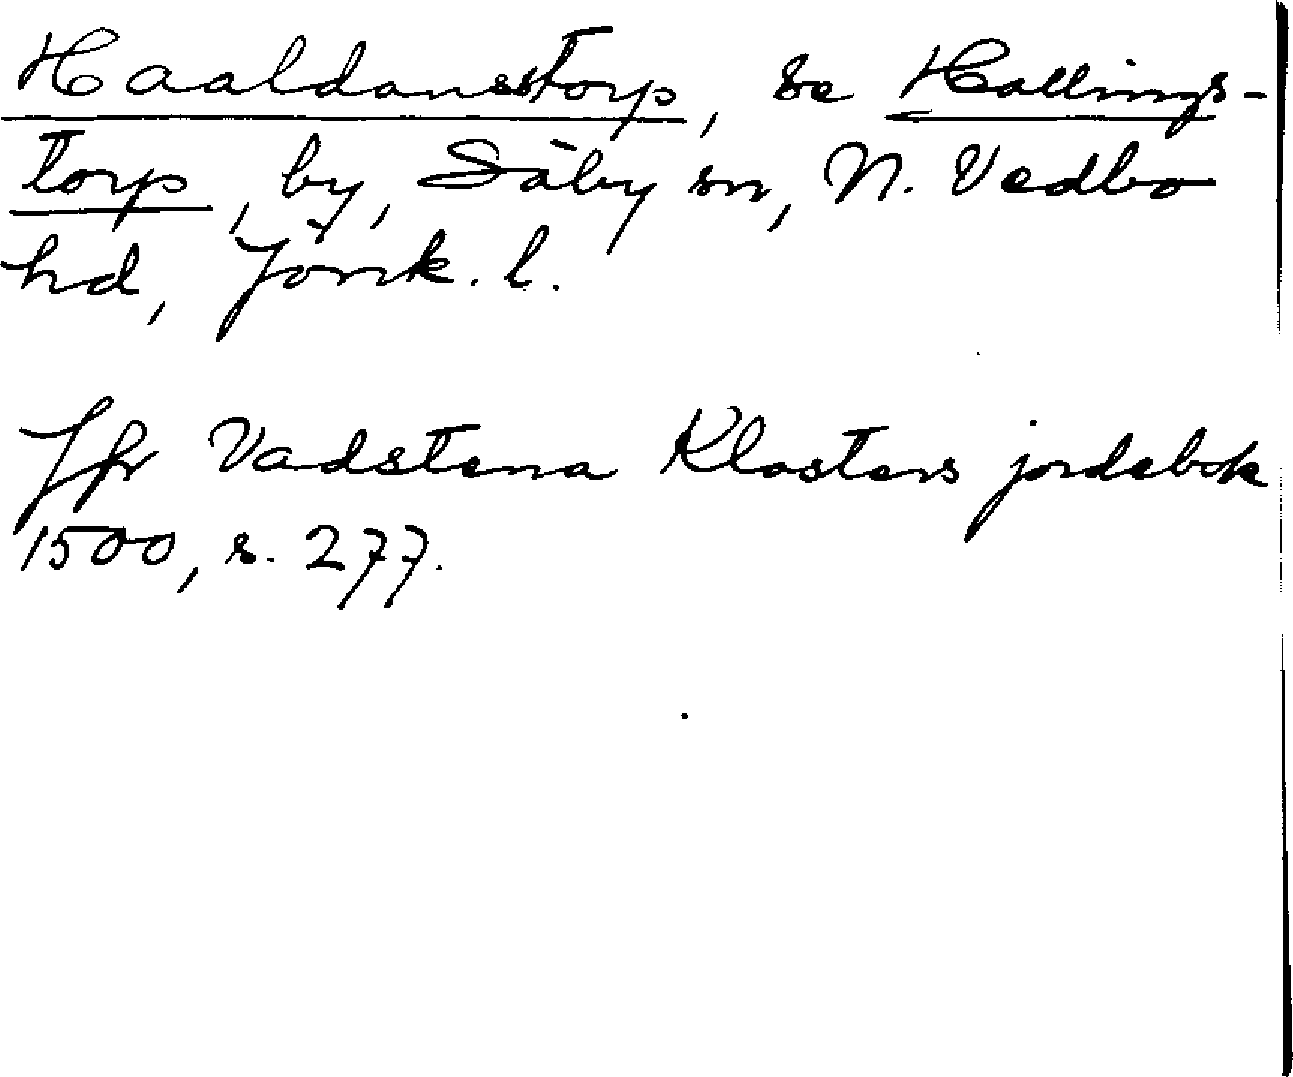 Haaldansstorp, se Hallings-
torp, by, Säby sn, N. Vedbo
hd, Jönk. l.
Jfr Vadstena Klosters jordebok
1500, s. 277.